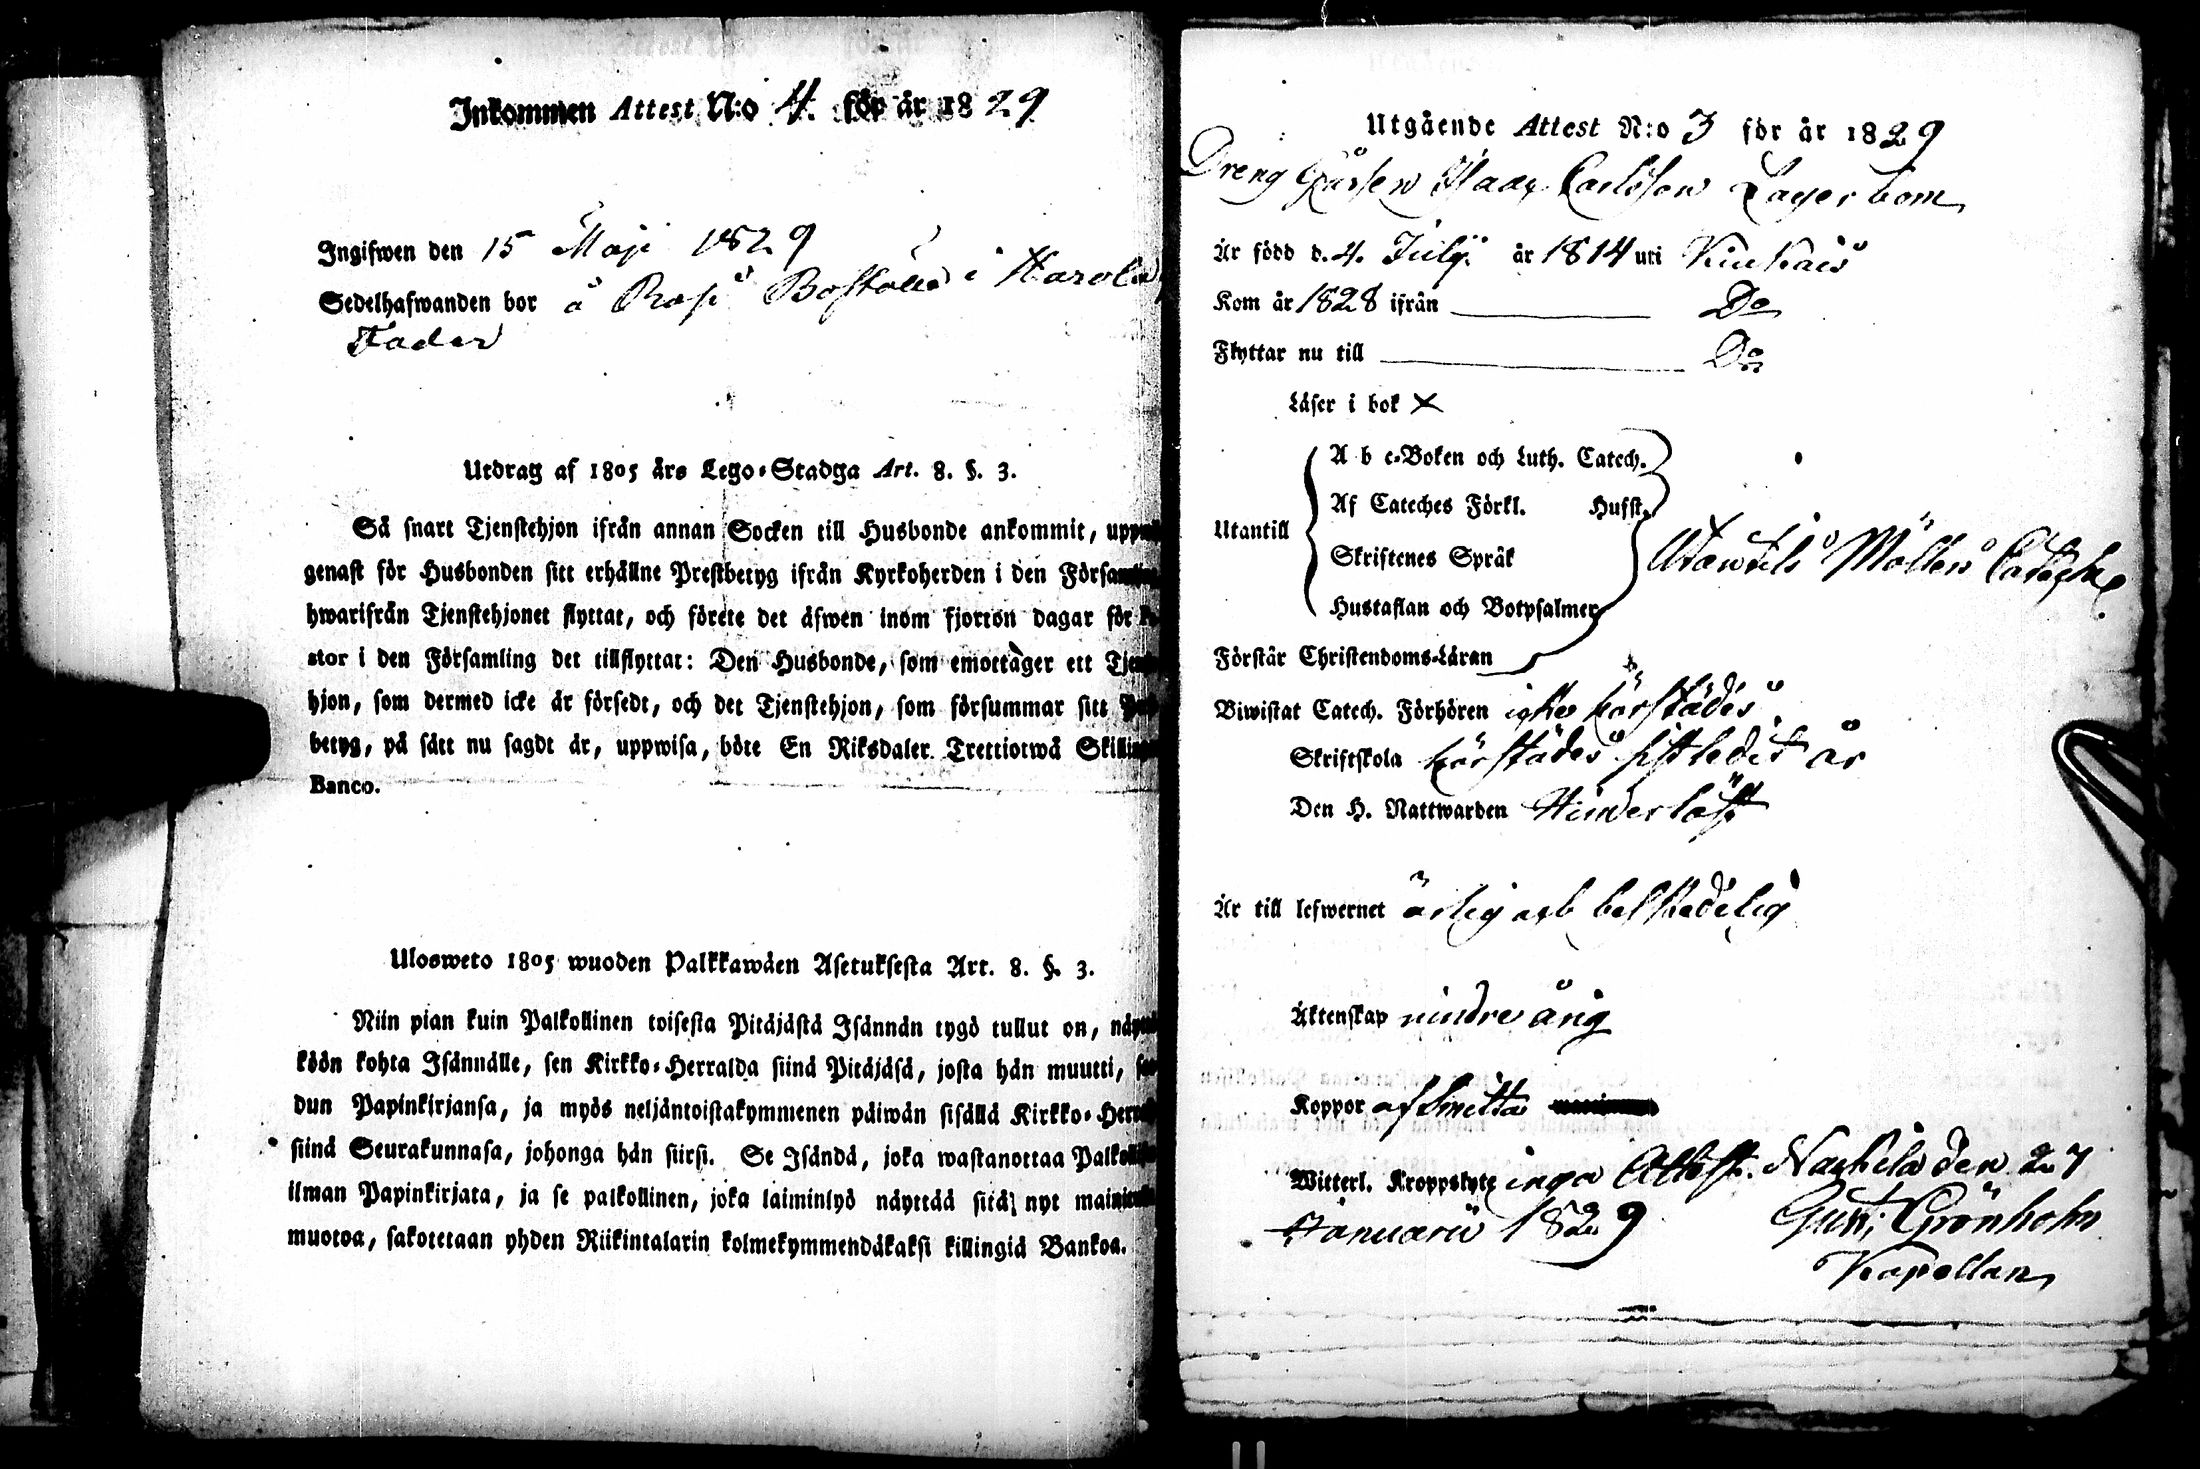 Inkommen Attest N:o 4. för år 1829
Ingifwen den 15 Maji 1829
Sedelhafwanden bor å Boställe i Harola
Fader
Utdrag af 1805 års Lego-Stadga Art. 8. §. 3.
Så snart Tjenstehjon ifrån annan Socken till Husbonde ankommit,
genast för Husbonden sitt erhållne Prestbetyg ifrån Kyrkoherden i den
hwarifrån Tjenstehjonet flyttat, och förete det äfwen inom fjorton dagar för
stor i den Församling det tillflyttat: Den Husbonde, som emottager ett
hjon, som dermed icke är försedt, och det Tjenstehjon, som försummar sitt
betyg, på sätt nu sagdt är, uppwisa, böte En Riksdaler Trettiotwå
Banco.
Ulosweto 1805 wuoden Palkkawäen Asetuksesta Art. 8. §. 3.
Niin pian kuin Palkollinen toisesta Pitäjästä Isännän tygö tullut on,
köön kohta Isännälle, sen Kirkko-Herralda siinä Pitäjäsä, josta hän muutti,
dun Papinkirjansa, ja myös neljäntoistakymmenen päiwän sisällä Kirkko-
siinä Seurakunnasa, johonga hän siirsi. Se Isändä, joka wastanottaa
ilman Papinkirjata, ja se palkollinen, joka laiminlyö näyttää sitä nyt
muotoa, sakotetaan yhden Riikintalarin kolmekymmendäkaksi killingiä Bankoa.
Utgående Attest N:o 3 för år 1829
Dreng Gåssen Isaac Carlsson Lagerbom
Är född d. 4. July. år 1814 uti Kiukais
Kom år 1828 ifrån Do
Flyttar nu till Do
Läser i bok X
Utantill
A b c-Boken och Luth. Catech.
Af Cateches Förkl. Husst.
Skriftenes Språk
Hustaflan och Botpsalmer
Utantils Möllers Cateches
Förstår Christendoms-Läran
Biwistat Catech. Förhören icke härstädes
Skriftskola härstädes sistledit år
Den H. Nattwarden Hinderlöst
Är till lefwernet ärlig och beskedelig
Äktenskap mindre årig
Koppor af Smitta
Witterl. Kroppslyte inga Attest. Nackila den 27
Januarii 1829 Gust. Grönholm
Kapellan